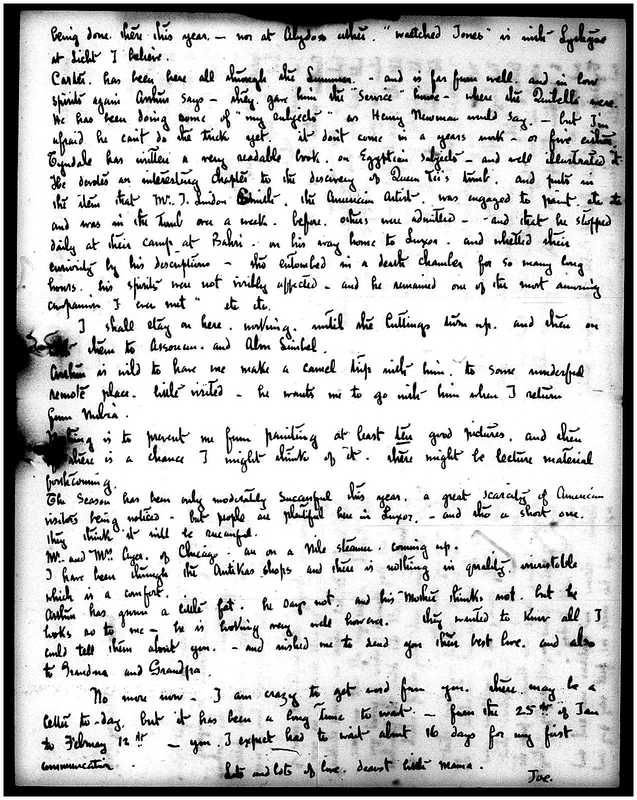 being done here this year – nor at Abydos either. "Wretched Jones" is with Lythgoe
at Licht I believe.
Carter has been here all through the Summer – and is far from well, and in low
spirits again Arthur says – they gave him the "Service" house – where the Quibells were.
He has been doing some of "my subjects" as Henry Newman would say – but I'm
afraid he can't do the trick yet. it don't come in a years work – or five either.
Tyndale has written a very readable book, on Egyptian subjects – and well illustrated it
He devotes an interesting chapter to the discovery of Queen Tii's tomb, and puts in
the item that Mr. J. Lindon Smith, the American Artist, was engaged to paint, etc etc
and was in the tomb over a week before others were admitted – and that he stopped
daily at their camp at Bahri, on his way home to Luxor, and whetted their
curiosity by his descriptions – "tho entombed in a death chamber for so many long
hours, his spirits were not visibly affected – and he remained one of the most amusing
companions I ever met" etc etc.
I shall stay on here, working, until the Cuttings turn up, and then on
them to Assouan, and Abou Simbel.
Arthur is wild to have me make a camel trip with him, to some wonderful
remote place, little visited – he wants me to go with him when I return
from Nubia.
Nothing is to prevent me from painting at least ten good pictures, and then
there is a chance I might think of it. there might be lecture material
forthcoming.
The Season has been only moderately successful this year, a great scarcity of American
visitors being noticed – but people are plentiful here in Luxor, – and tho a short one,
they think it will be successful.
Mr. and Mrs. Ayer, of Chicago, are on a Nile steamer, coming up.
I have been through the Antikas shops and there is nothing in quality, irresistible
which is a comfort.
Arthur has grown a little fat, he says not, and his Mother thinks not, but he
looks so to me – he is looking very well however. They wanted to know all I
could tell them about you – and wished me to send you their best love, and also
to Grandma and Grandpa.
No more now – I am crazy to get word from you. there may be a
letter to-day, but it has been a long time to wait – from the 25th of Jan
to February 12th – you, I expect had to wait about 16 days for my first
communication.
Lots and lots of love, dearest little Mama.
Joe.